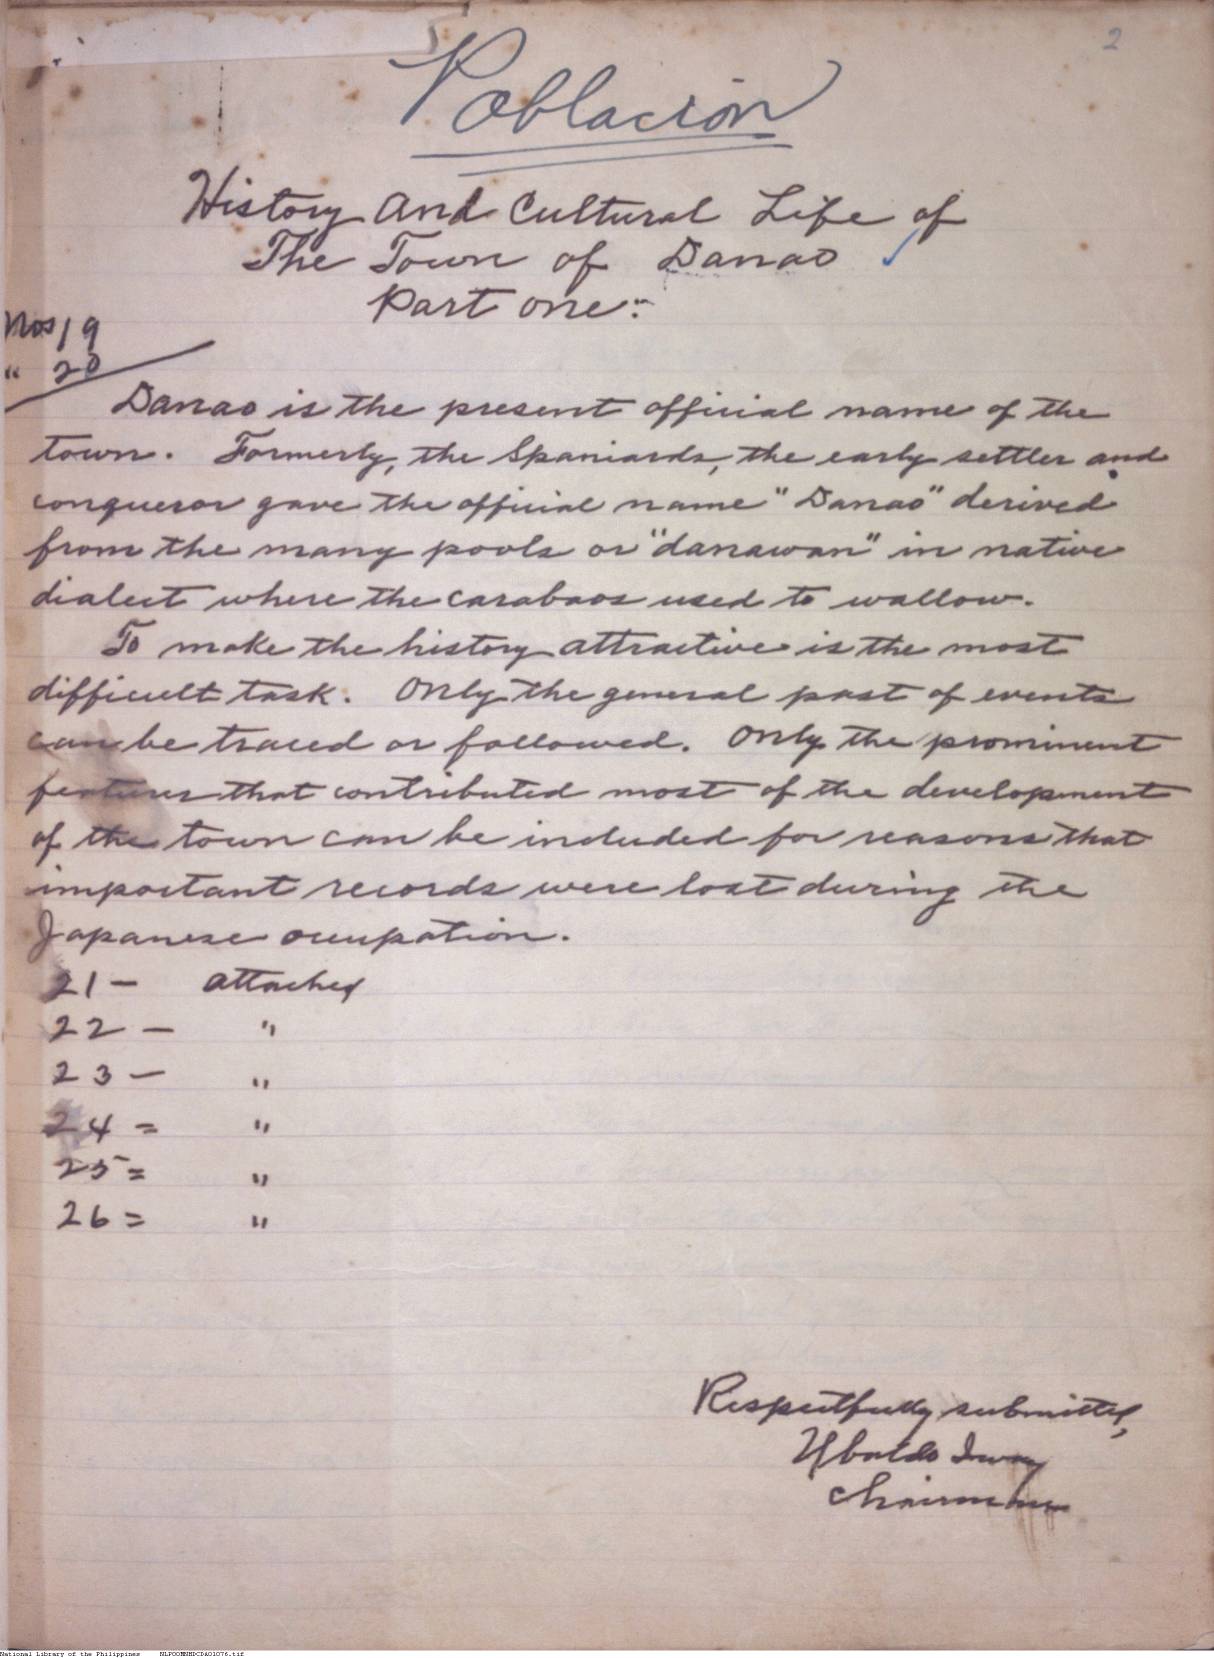 2
Poblacion
History and Cultural Life of
The Town of Danao
Part one:
Nos 19
" 20
Danao is the present official name of the
town. Formerly, the Spaniards, the early settler and
conqueror gave the official name "Danao" derived
from the many pools or "danawan" in native
dialect where the carabaos used to wallow.
To make the history attractive is the most
difficult task. Only the general past of events
can be traced or followed. Only the prominent
features that contributed most of the development
of the town can be included for reasons that
important records were lost during the
Japanese occupation.
21 - attached
22 - "
23 - "
24 = "
25 = "
26 = "
Respectfully submitted,
Ubaldo
Chairman
National Library of the Philippines NLPOOMNHDCDA01076.tif